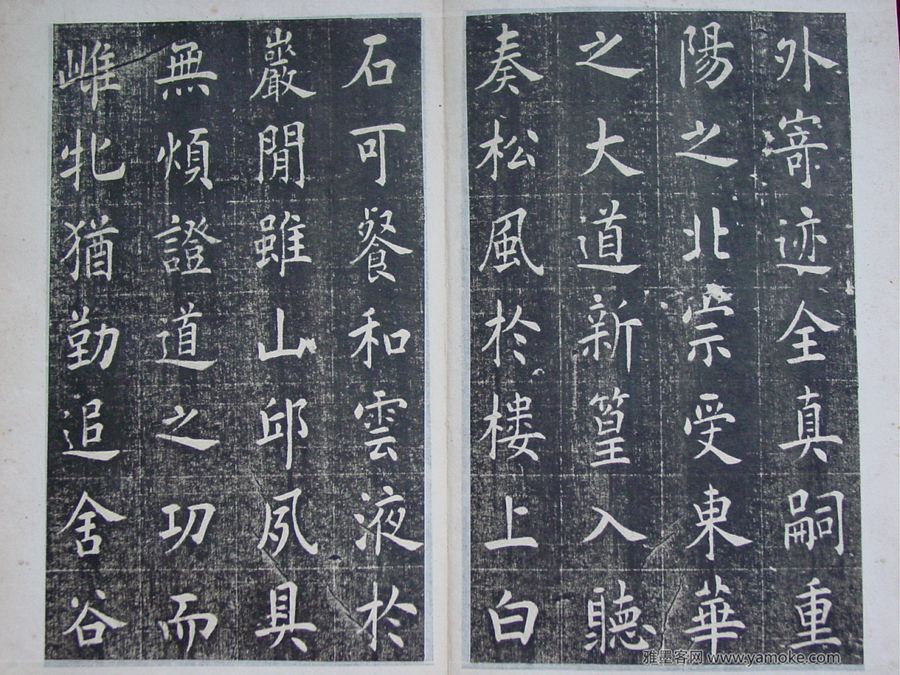 外寄迹全真嗣重
陽之北宗受東華
之大道新篁入聽
奏松風於樓上白
石可餐和雲液於
巖閒雖山邱夙具
無煩證道之功而
雌牝猶勤追舍谷
雅墨客网 www.yamoke.com